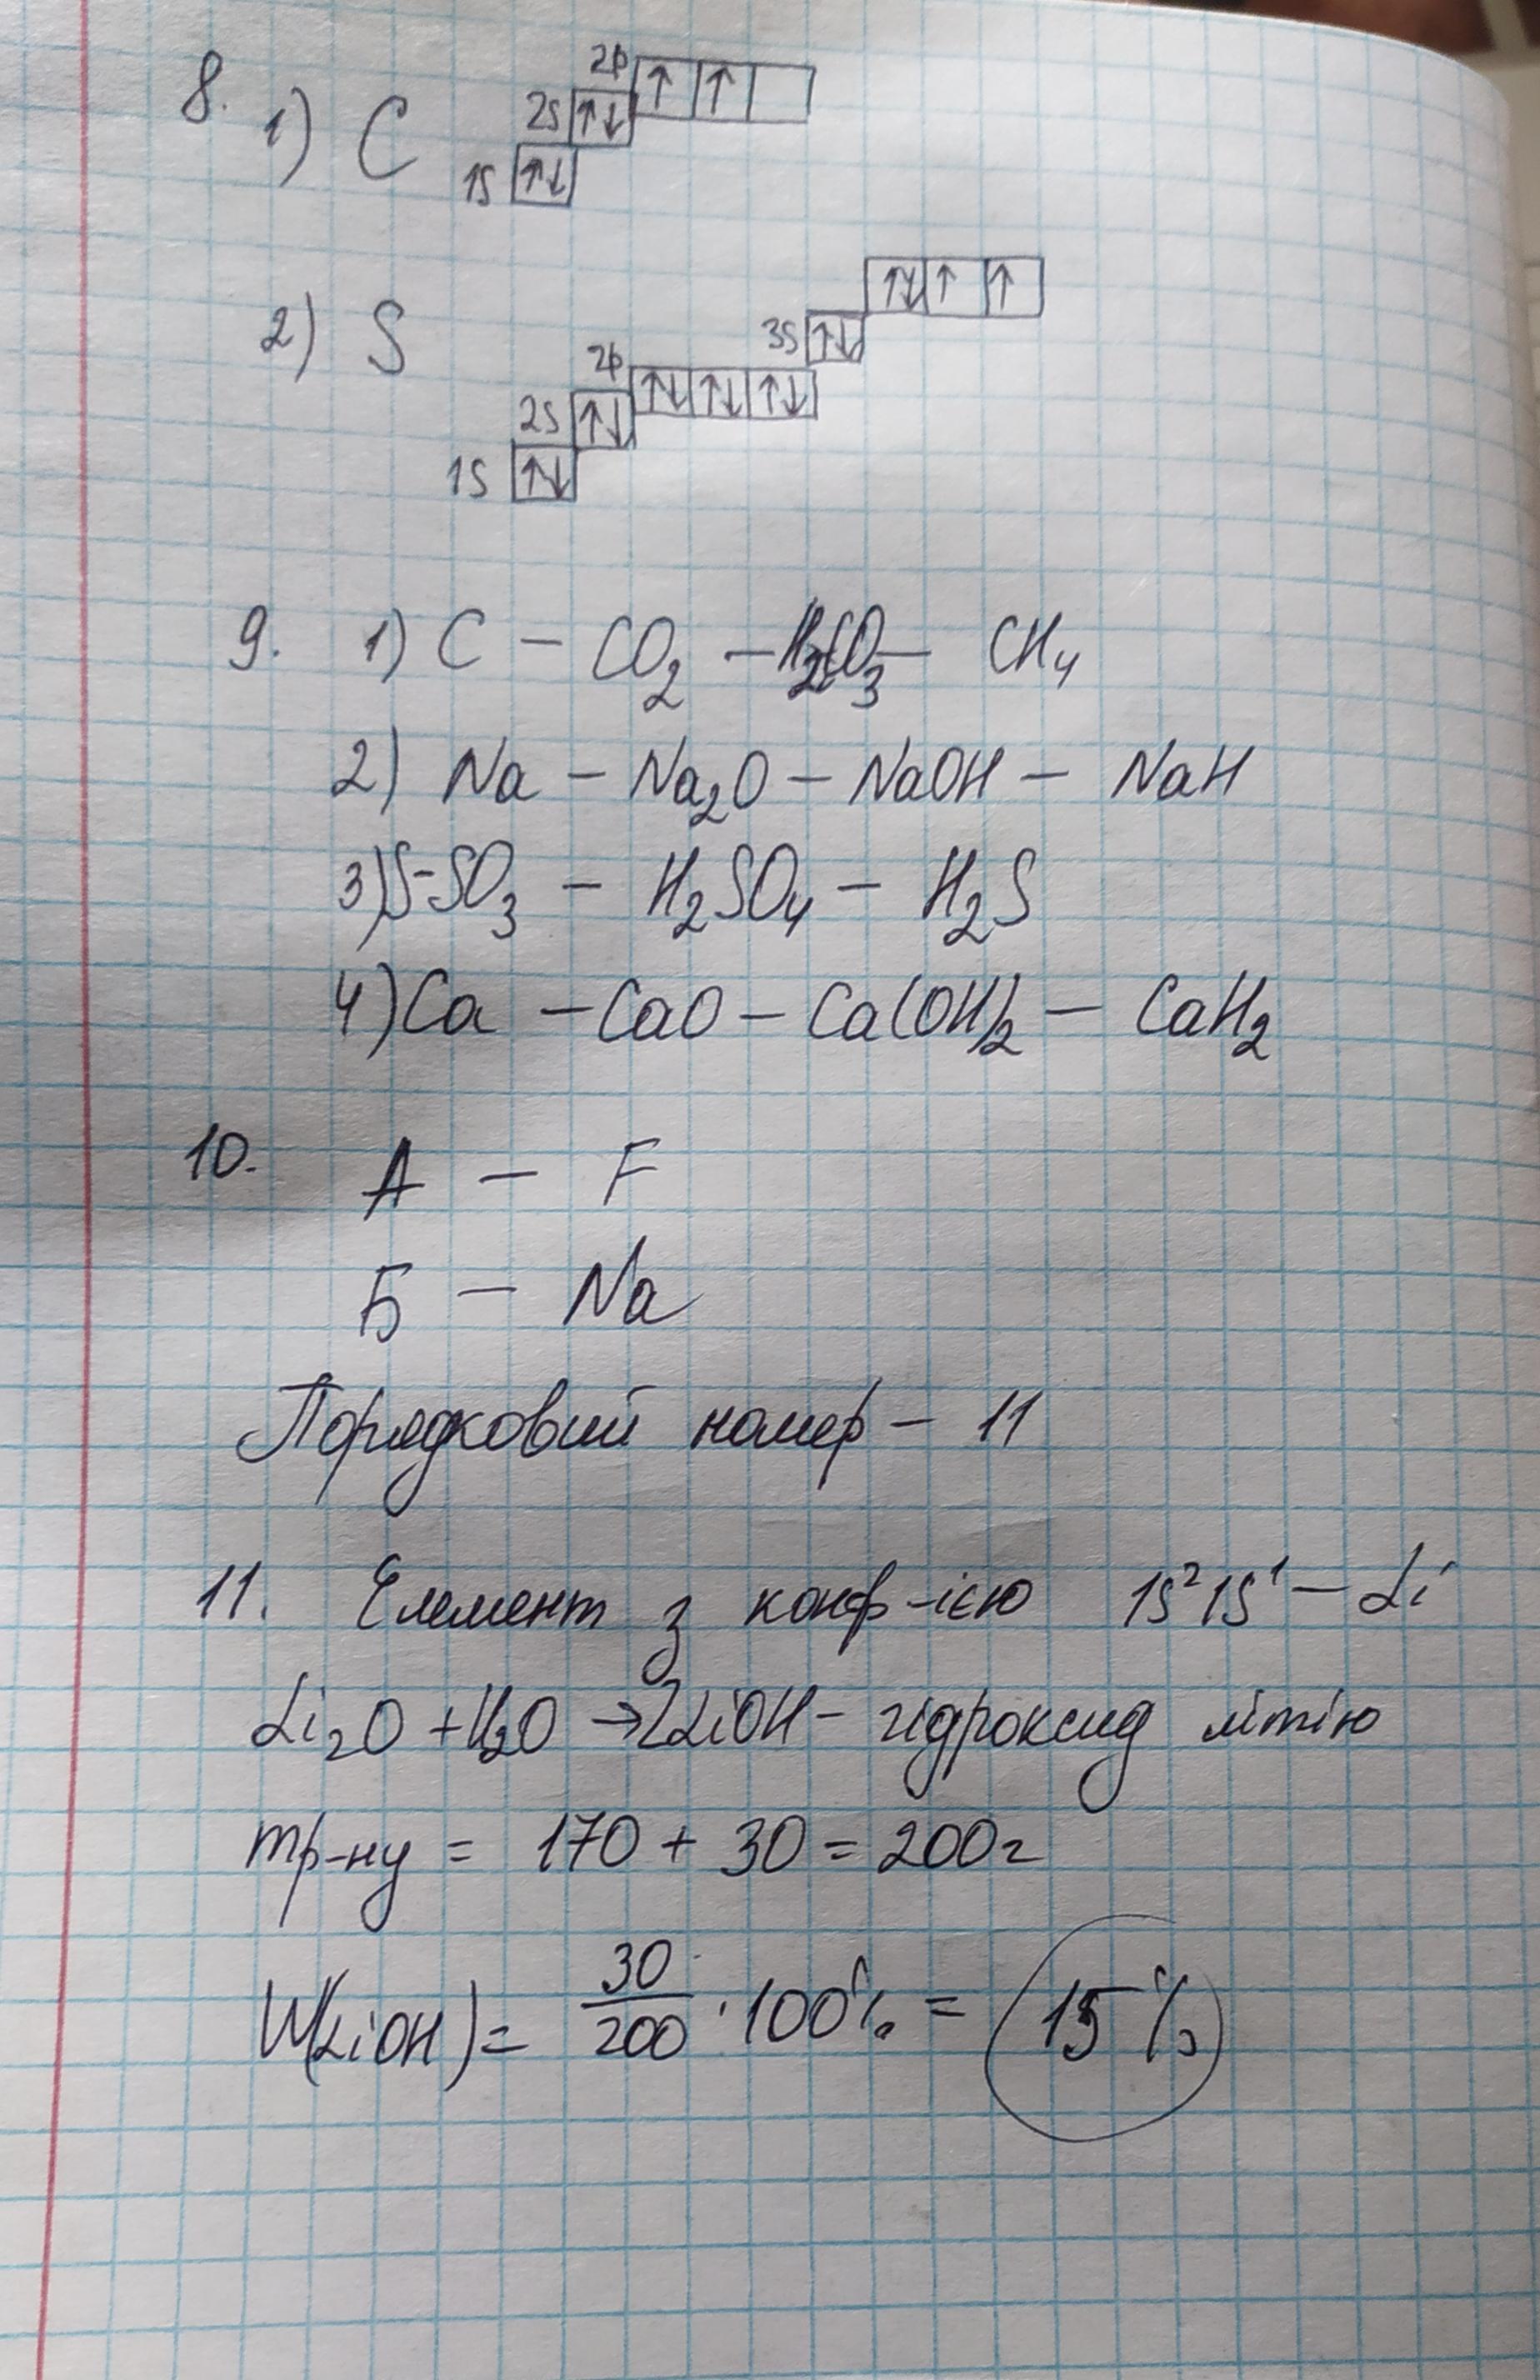 8.
1) C 1s ↑↓ 2s ↑↓ 2p ↑ ↑
2) S 1s ↑↓ 2s ↑↓ 2p ↑↓ ↑↓ ↑↓ 3s ↑↓ ↑↓ ↑ ↑
9. 1) C – CO₂ – H₂CO₃ – CH₄
2) Na – Na₂O – NaOH – NaH
3) S – SO₃ – H₂SO₄ – H₂S
4) Ca – CaO – Ca(OH)₂ – CaH₂
10. А – F
Б – Na
Порядковий номер – 11
11. Елемент з конф-ією 1s² 1s¹ – Li
Li₂O + H₂O → 2LiOH – гідроксид літію
mр-ну = 170 + 30 = 200г
W(LiOH) = 30/200 · 100% = 15%